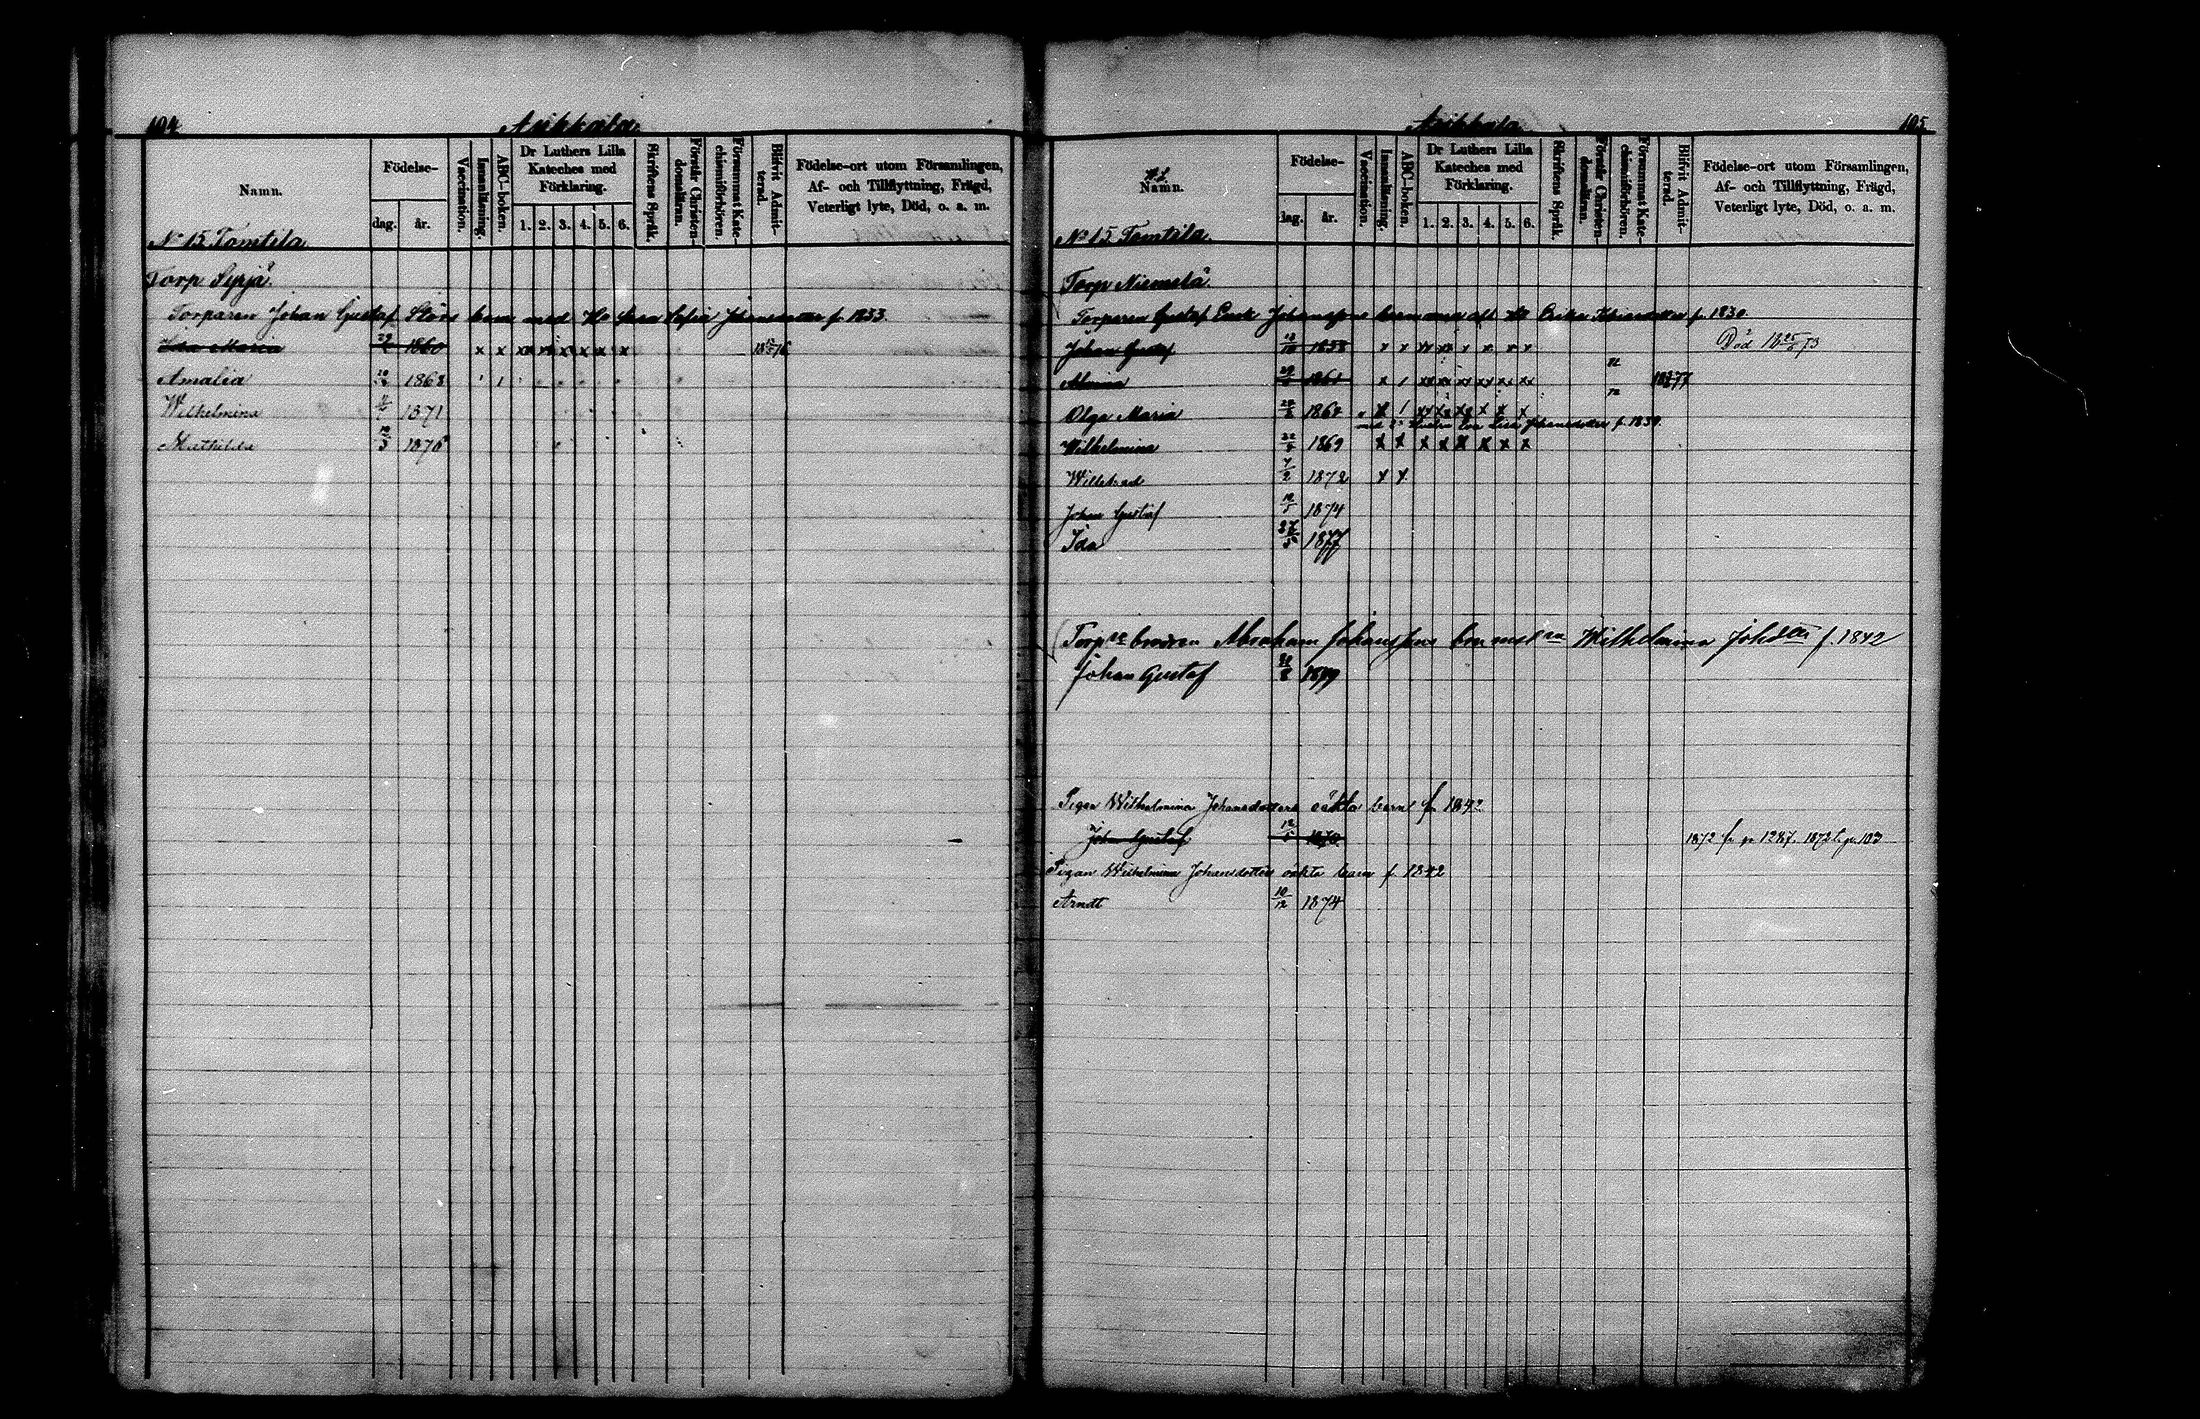 104 Asikkala
Namn. Födelse- dag. år. Vaccination. Innanläsning. ABC-boken. Dr Luthers Lilla Kateches med Förklaring. 1. 2. 3. 4. 5. 6. Skriftens Språk. Förstår Christendomsläran. Försummat Katechismiförhören. Blifvit Admitterad. Födelse-ort utom Församlingen, Af- och Tillflyttning, Frägd, Veterligt lyte, Död, o. a. m.
No 15 Tomtila
Torp Syrjä
Torparen Johan Gustaf barn med Sofia Johansdotter f. 1833
Ida Maria 1860 x x xx xx x x x x
Amalia 1868
Wilhelmina 1871
Mathilda 1876
Asikkala 105
Namn. Födelse- dag. år. Vaccination. Innanläsning. ABC-boken. Dr Luthers Lilla Kateches med Förklaring. 1. 2. 3. 4. 5. 6. Skriftens Språk. Förstår Christendomsläran. Försummat Katechismiförhören. Blifvit Admitterad. Födelse-ort utom Församlingen, Af- och Tillflyttning, Frägd, Veterligt lyte, Död, o. a. m.
No 15 Tomtila
Torp Niemelä
Torparen Gustaf Johanssons barn med f. 1830
Johan Gustaf 1858 Död
1861 1877
Olga Maria 1864
Johansdotter f. 1839
Wilhelmina 22/4 1869 x x x x x x x x
7/2 1872 x x
Johan Gustaf 1874
Ida 27/3 1877
Torp re brodren Abraham Johanssons barn med Wilhelmina Johdter f. 1842
Johan Gustaf 1879
Pigan Wilhelmina Johansdotters oäkta barn f. 1842
Johan Gustaf 12/5 1870 1872 fr. pg 1287. 1873 t. pg. 103
Pigan Wilhelmina Johansdotters oäkta barn f. 1842
Arndt 10/12 1874